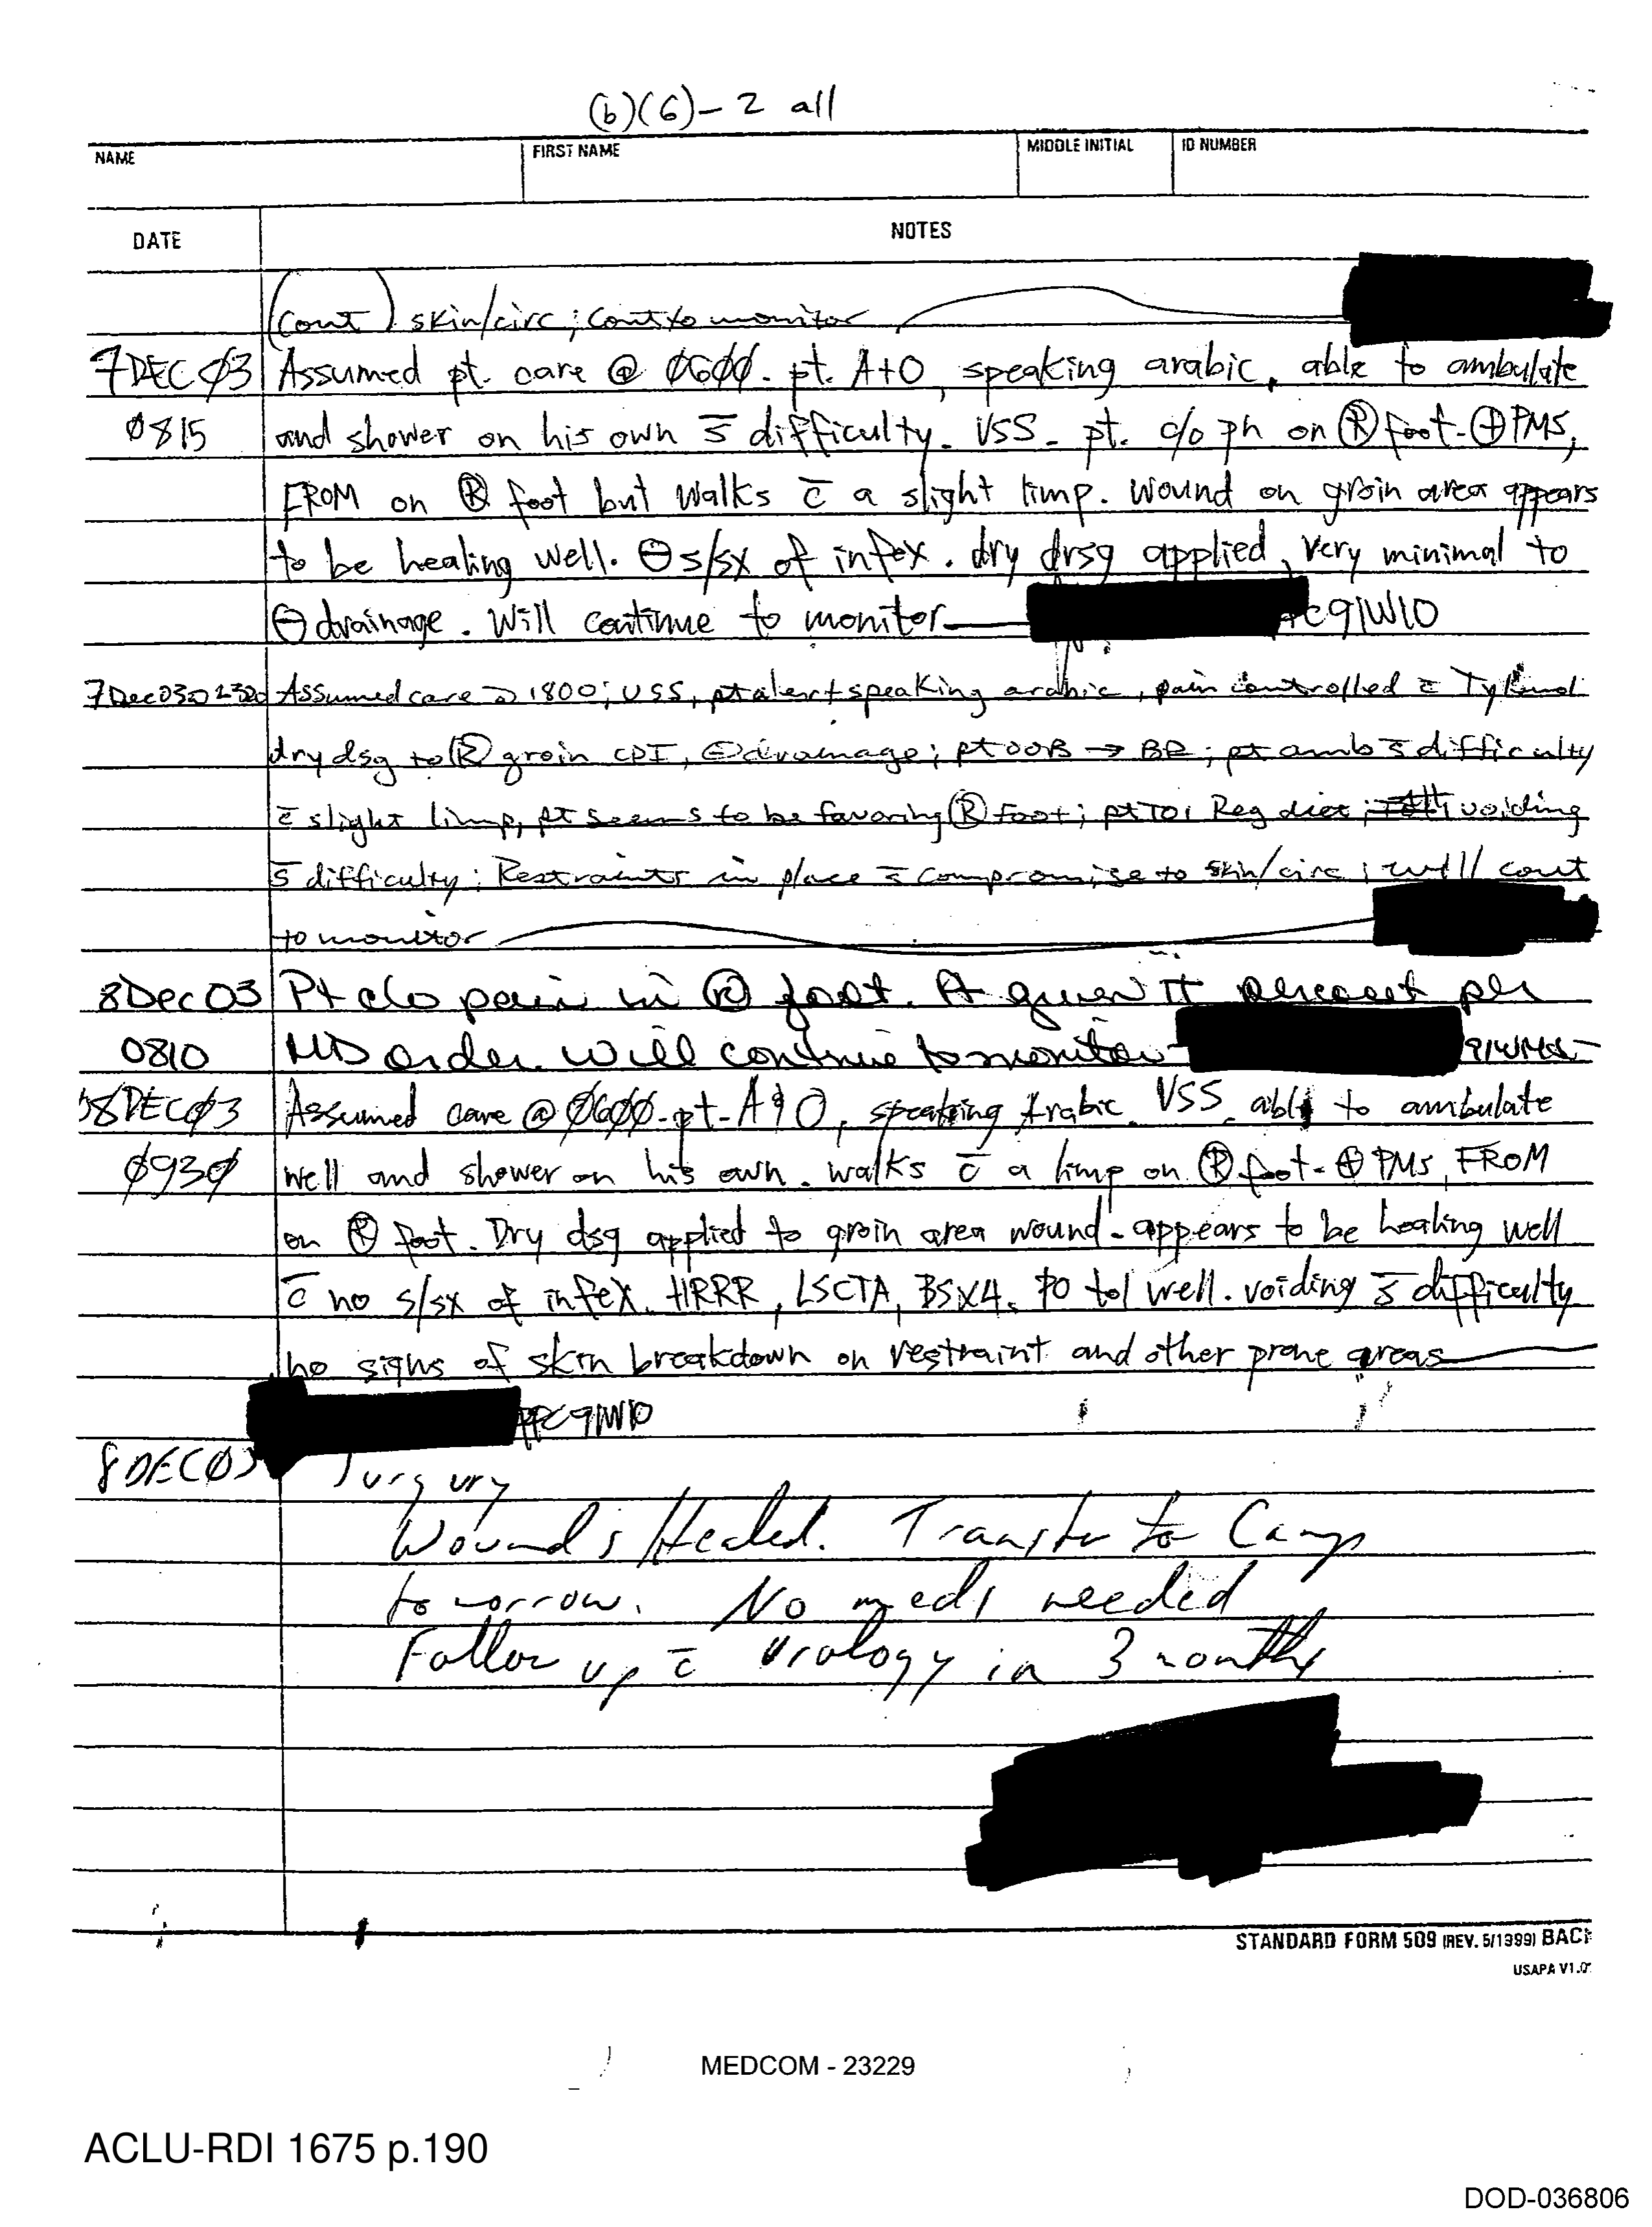 (b)(6)-2 all
NAME FIRST NAME MIDDLE INITIAL ID NUMBER
DATE NOTES
(cont) skin/circ; cont to monitor
7DEC03 Assumed pt. care @ 0600. pt. A+O, speaking arabic, able to ambulate
0815 and shower on his own s̄ difficulty. VSS. pt. c/o pn on Ⓡ foot. ⊕PMS,
FROM on Ⓡ foot but walks c̄ a slight limp. Wound on groin area appears
to be healing well. ⊖ s/sx of infex. dry drsg applied, very minimal to
⊖ drainage. Will continue to monitor 91W10
7Dec03 Assumed care 1800; VSS, pt alert speaking arabic, pain controlled c̄ Tylenol
dry dsg to Ⓡ groin CDI, ⊖drainage; pt OOB → BR; pt amb s̄ difficulty
c̄ slight limp, pt seems to be favoring Ⓡ foot; pt Tol Reg diet; voiding
s̄ difficulty; Restraints in place s̄ compromise to skin/circ; will cont
to monitor
8Dec03 Pt c/o pain in Ⓡ foot. Pt given II percocet per
0810 MD order. Will continue to monitor
8DEC03 Assumed care @ 0600. pt. A&O, speaking Arabic. VSS. able to ambulate
0930 well and shower on his own. walks c̄ a limp on Ⓡ foot. ⊕ PMS, FROM
on Ⓡ foot. Dry dsg applied to groin area wound. appears to be healing well
c̄ no s/sx of infex. HRRR, LSCTA, BSX4. PO tol well. voiding s̄ difficulty
no signs of skin breakdown on restraint and other prone areas
PFC 91W10
8DEC03 Surgury
Wounds Healed. Transfer to Camp
tomorrow. No meds needed
Follow up c̄ Urology in 3 months
STANDARD FORM 509 (REV. 5/1999) BACK
USAPA V1.0
MEDCOM - 23229
ACLU-RDI 1675 p.190
DOD-036806